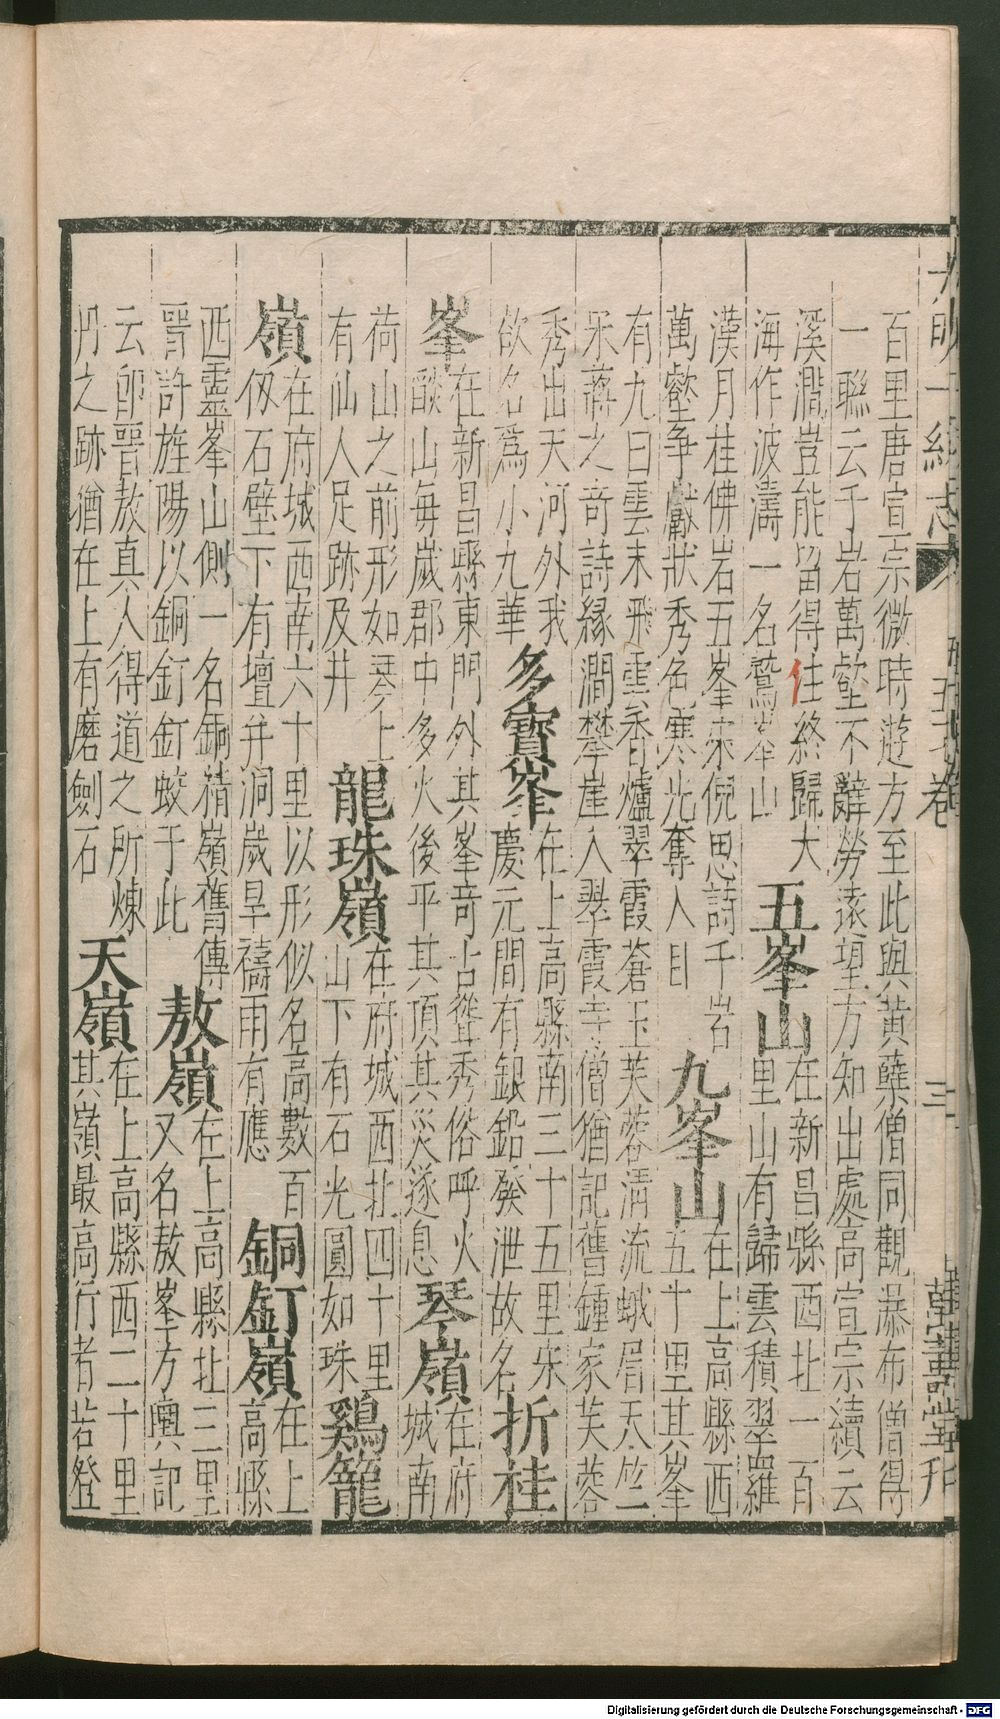 大明一統志 五十七卷 三 萬壽堂刋
百里唐宣宗微時遊方至此與黃蘗僧同觀瀑布僧得
一聯云千岩萬壑不辭勞遠望方知出處高宣宗續云
溪澗豈能留得住終歸大
海作波濤一名鷲峯山
五峯山
在新昌縣西北一百
里山有歸雲積翠羅
漢月桂佛岩五峯宋倪思詩千岩
萬壑爭獻狀秀色寒光奪人目
九峯山
在上高縣西
五十里其峯
有九曰雲末飛雲香爐翠霞蒼玉芙蓉清流蛾眉天竺
宋蔣之奇詩緣澗攀崖入翠霞寺僧猶記舊鍾家芙蓉
秀出天河外我
欲名爲小九華
多寶峯
在上高縣南三十五里宋
慶元間有銀鉛發泄故名
折桂
峯
在新昌縣東門外其峯奇占聳秀俗呼火
燄山每歲郡中多火後平其頂其災遂息
琴嶺
在府
城南
荷山之前形如琴上
有仙人足跡及井
龍珠嶺
在府城西北四十里
山下有石光圓如珠
鷄籠
嶺
在府城西南六十里以形似名高數百
仭石壁下有壇井洞歲旱禱雨有應
銅釘嶺
在上
高縣
西靈峯山側一名銅積嶺舊傳
晉許旌陽以銅釘釘蛟于此
敖嶺
在上高縣北三里
又名敖峯方輿記
云卽晉敖真人得道之所煉
丹之跡猶在上有磨劍石
天嶺
在上高縣西二十里
其嶺最高行者若登
Digitalisierung gefördert durch die Deutsche Forschungsgemeinschaft - DFG